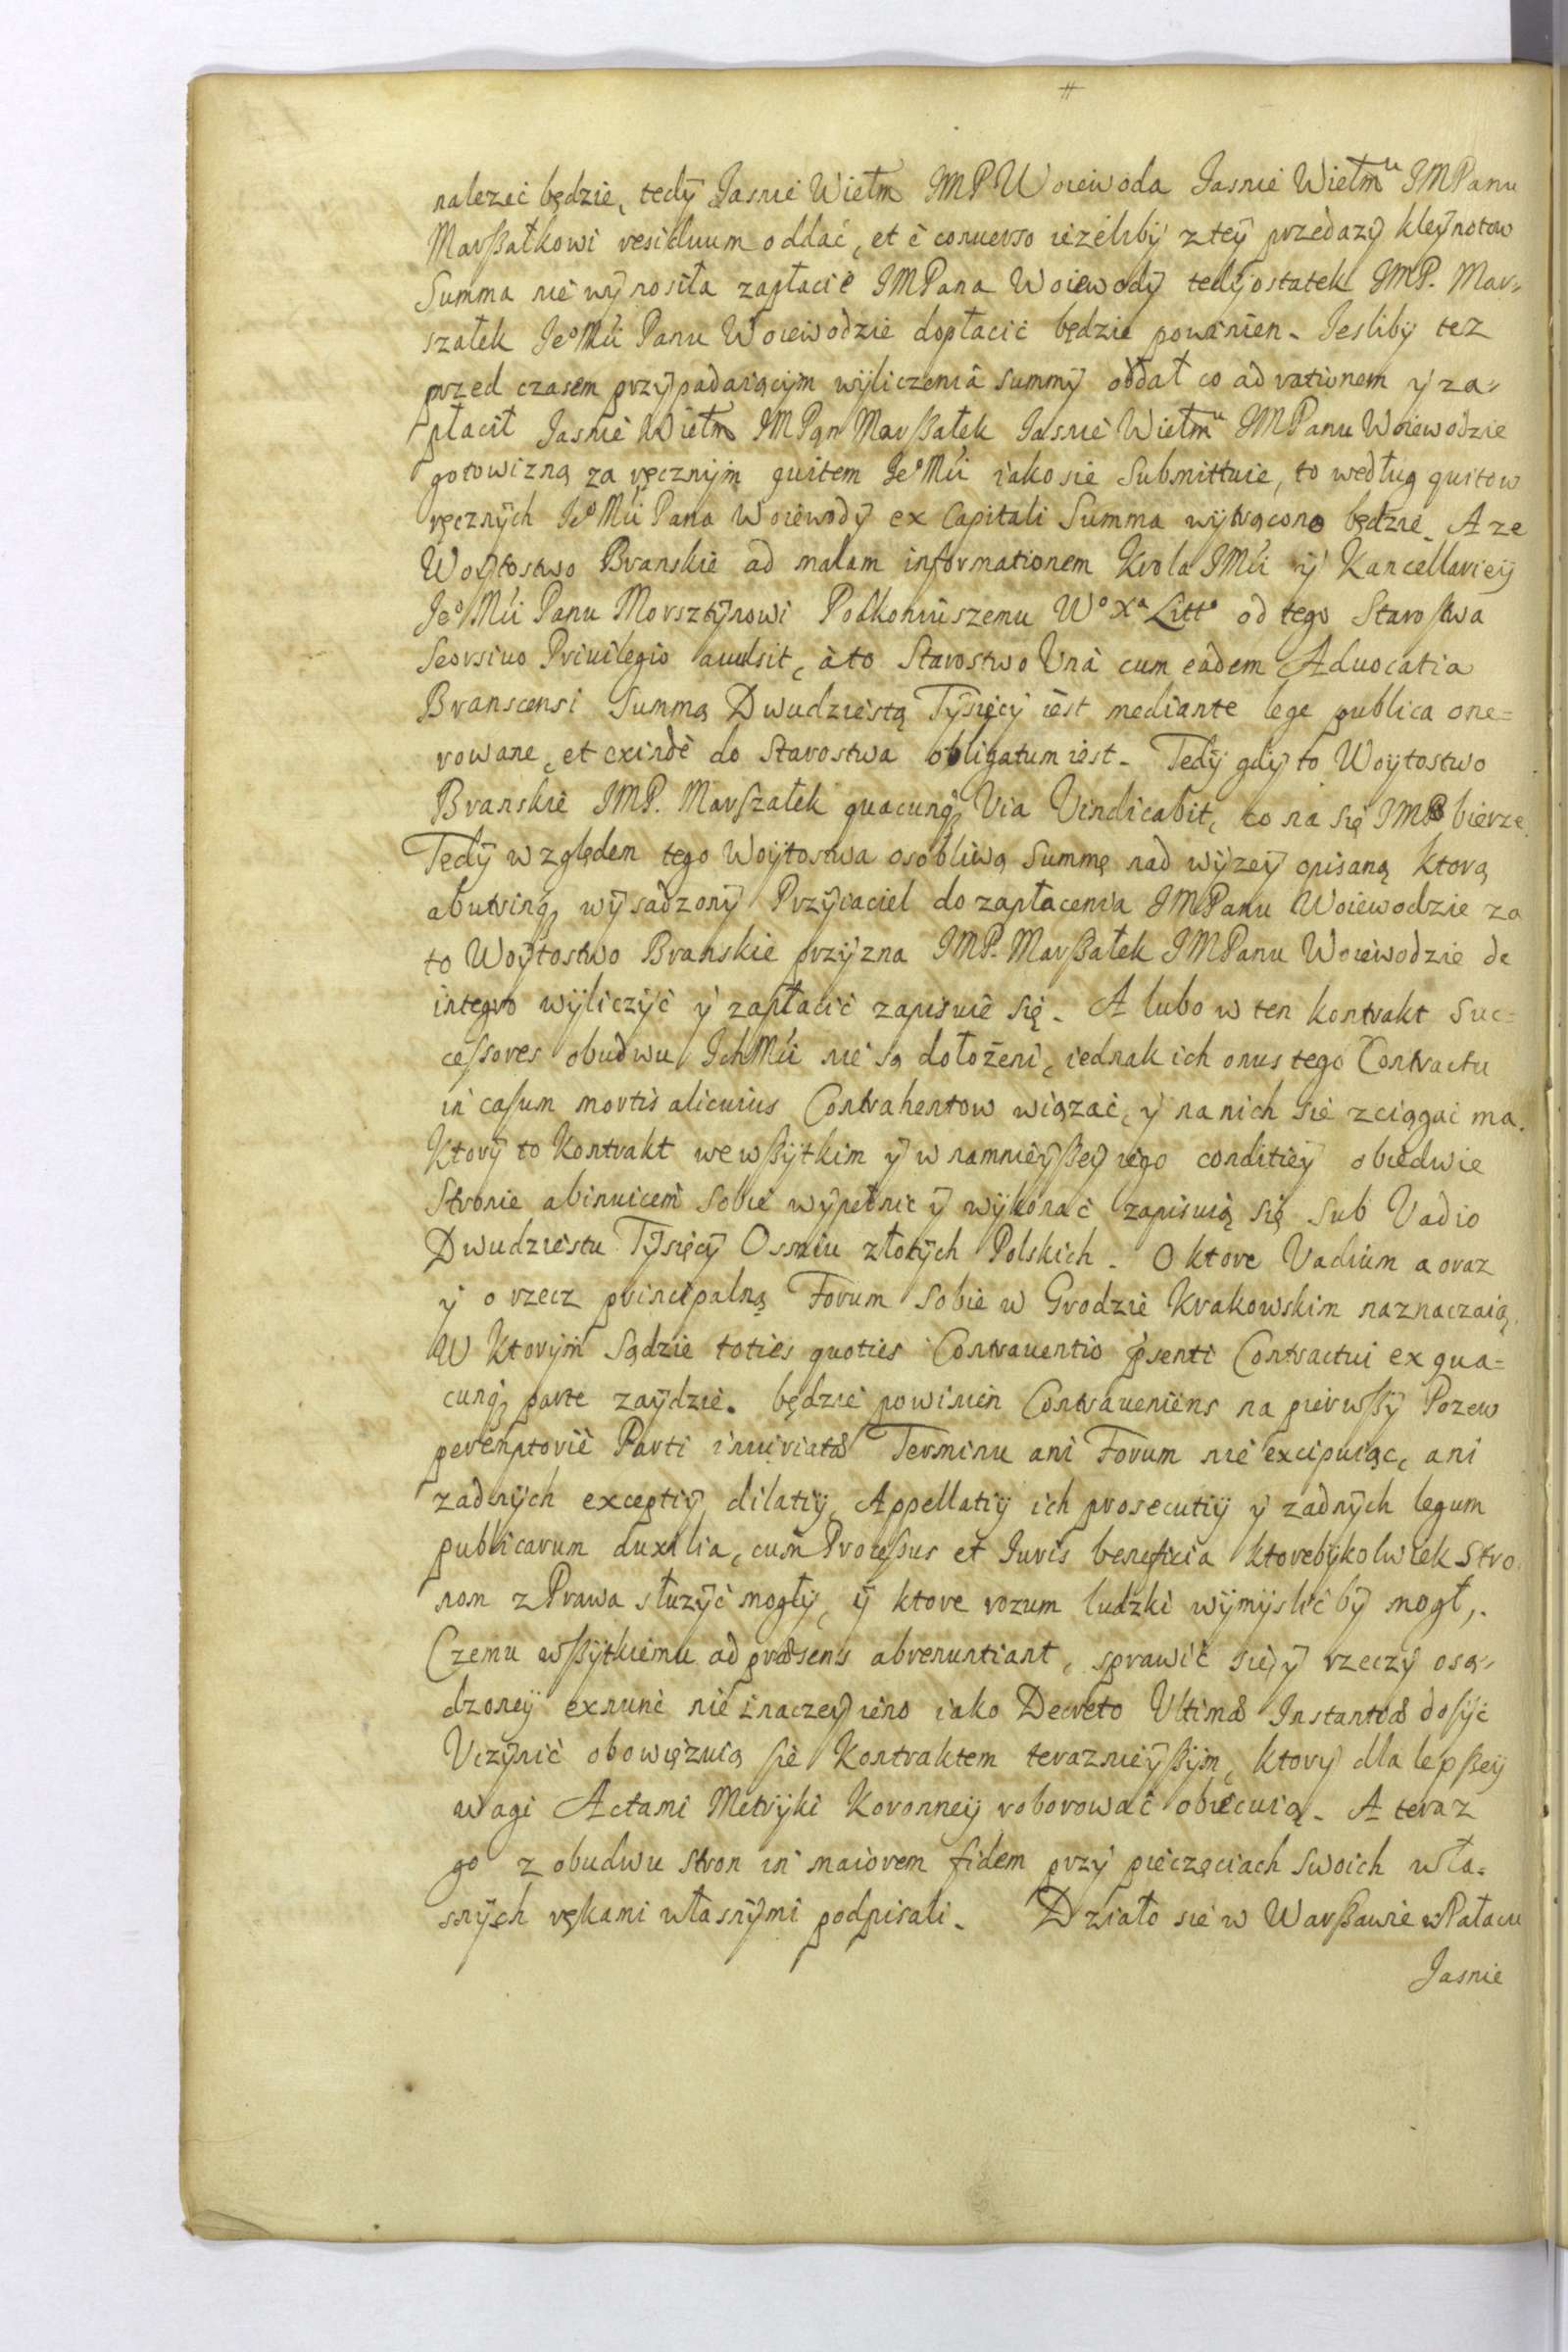 nalezeć będzie, tedy Jasnie Wielm IMP Woiewoda Jasnie Wielmu IMPanu
Marßałkowi residuum oddać, et è conuerso ieżeliby z tey przedazy kleynotow
Summa nie wynosiła zapłacić IMPana Woiewody tedy ostatek IMP. Mar=
szałek Jeo Mći Panu Woiewodzie dopłacić będzie powinien. Jesliby tez
przed czasem przypadaiącym wyliczenia Summy oddał co ad rationem y za=
płacił Jasnie Wielm IMPan Marßałek Jasnie Wielmu IMPanu Woiewodzie
gotowizną za ręcznym quitem Jeo Mći iako sie Submittuie, to według quitow
ręcznych Jeo Mći Pana Woiewody ex Capitali Summa wytrącono będzie. A ze
Woytostwo Branskie ad malam informationem Krola IMći y Kancellariey
Jeo Mći Panu Morsztynowi Podkoniuszemu Wo Xa Litto od tego Starostwa
Seorsiuo Priuilegio auulsit, à to Starostwo Vnà cum eadem Aduocatia
Branscensi Summą Dwudziestą Tysięcy iest mediante lege publica one=
rowane, et exindè do Starostwa obligatum iest. Tedy gdy to Woytostwo
Branskie IMP. Marszałek quacunq Via Vindicabit, co na się IMP bierze.
Tedy względem tego Woytostwa osobliwą Summę nad wyzey opisaną ktorą
ab utrinq wysadzony Przyiaciel do zapłacenia IMPanu Woiewodzie za
to Woytostwo Branskie przyzna IMP. Marßałek IMPanu Woiewodzie de
integro wyliczyć y zapłacić zapisuie się. A lubo w ten kontrakt Suc=
cessores obudwu Ich Mći nie są dołożeni, iednak ich onus tego Contractu
in casum mortis alicuius Contrahentow wiązać, y na nich sie zciągać ma.
Ktory to Kontrakt we wßytkim y w namnieyßey iego conditiey obiedwie
Stronie ab inuicem sobie wypełnić y wykonać zapisuią się sub Vadio
Dwudziestu Tysięcy Osmiu złotych Polskich. O ktore Vadium a oraz
y o rzecz principalną Forum sobie w Grodzie Krakowskim naznaczaią.
W ktorym Sądzie toties quoties Contrauentio psenti Contractui ex qua=
cunq parte zaydzie. będzie powinien Contraueniens na pierwßy Pozew
peremptoriè Parti iniuriatæ Terminu ani Forum nie excipuiąc, ani
zadnych exceptiy, dilatiy, Appellatiy ich prosecutiy y zadnych legum
publicarum auxilia, cum Processus et Iuris beneficia ktorebykolwiek Stro
nom z Prawa słuzyć mogły, y ktore rozum ludzki wymyslić by mogł,.
Czemu wßytkiemu ad præsens abrenuntiant, sprawić sie, y rzeczy osą=
dzoney exnunc nie inaczey ieno iako Decreto Vltimæ Instantiæ dosyć
Vczynić obowięzuią sie Kontraktem teraznieyßym, ktory dla lepßey
wagi Actami Metryki Koronney roborować obiecuią. A teraz
go z obudwu stron in maiorem fidem przy pieczęciach swoich wła=
snych rękami własnymi podpisali. Działo sie w Warßawie w Pałacu
Jasnie